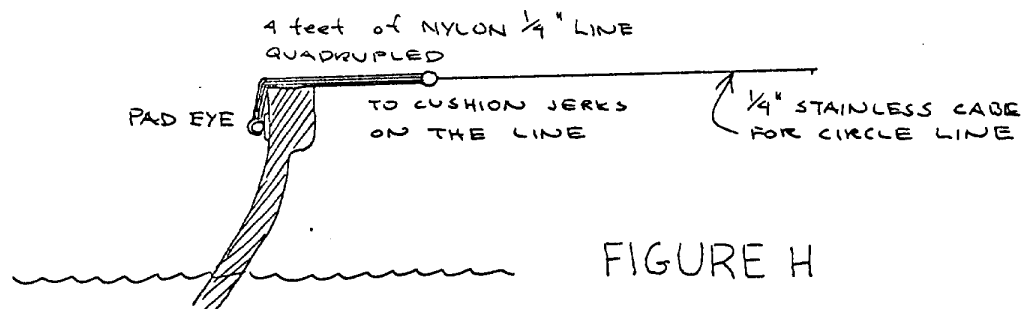 4 feet of NYLON 1/4" LINE
QUADRUPLED
PAD EYE
TO CUSHION JERKS
ON THE LINE
1/4" STAINLESS CABE
FOR CIRCLE LINE
FIGURE H